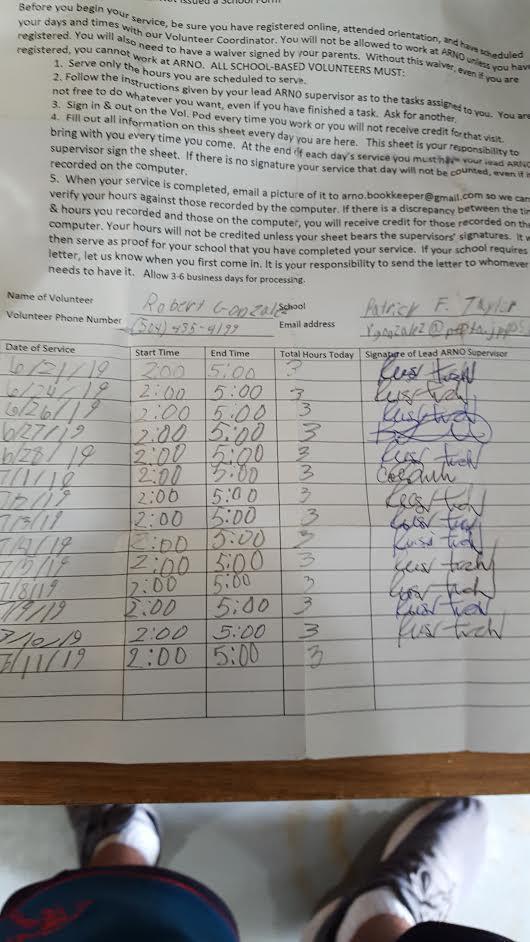 Issued a School Form
Before you begin your service, be sure you have registered online, attended orientation, and have scheduled
your days and times with our Volunteer Coordinator. You will not be allowed to work at ARNO unless you have
registered. You will also need to have a waiver signed by your parents. Without this waiver, even if you are
registered, you cannot work at ARNO. ALL SCHOOL-BASED VOLUNTEERS MUST:
1. Serve only the hours you are scheduled to serve.
2. Follow the instructions given by your lead ARNO supervisor as to the tasks assigned to you. You are
not free to do whatever you want, even if you have finished a task. Ask for another.
3. Sign in & out on the Vol. Pod every time you work or you will not receive credit for that visit.
4. Fill out all information on this sheet every day you are here. This sheet is your responsibility to
bring with you every time you come. At the end of each day's service you must have your lead ARNO
supervisor sign the sheet. If there is no signature your service that day will not be counted, even if it
recorded on the computer.
5. When your service is completed, email a picture of it to arno.bookkeeper@gmail.com so we can
verify your hours against those recorded by the computer. If there is a discrepancy between the tim
& hours you recorded and those on the computer, you will receive credit for those recorded on the
computer. Your hours will not be credited unless your sheet bears the supervisors' signatures. It w
then serve as proof for your school that you have completed your service. If your school requires
letter, let us know when you first come in. It is your responsibility to send the letter to whomever
needs to have it. Allow 3-6 business days for processing.
Name of Volunteer Robert Gonzalez School Patrick F. Taylor
Volunteer Phone Number (504) 435-4199 Email address
Date of Service Start Time End Time Total Hours Today Signature of Lead ARNO Supervisor
6/21/19 2:00 5:00 3
6/24/19 2:00 5:00 3
6/26/19 2:00 5:00 3
6/27/19 2:00 5:00 3
6/28/19 2:00 5:00 3
7/1/19 2:00 5:00 3
7/2/19 2:00 5:00 3
7/3/19 2:00 5:00 3
2:00 5:00 3
2:00 5:00 3
7/8/19 2:00 5:00 3
7/9/19 2:00 5:00 3
7/10/19 2:00 5:00 3
7/11/19 2:00 5:00 3